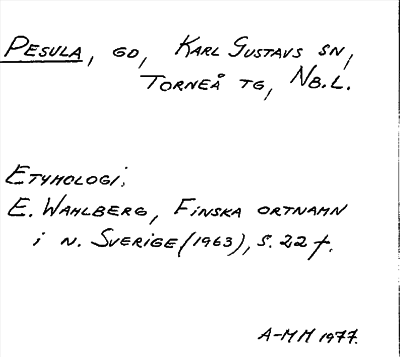 PESULA, GD, KARL GUSTAVS SN,
TORNEÅ TG, NB.L.
ETYMOLOGI:
E. WAHLBERG, FINSKA ORTNAMN
i N. SVERIGE (1963), S. 22 f.
A-MM 1977.